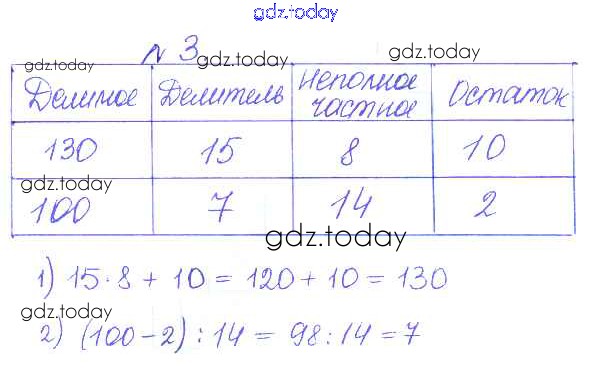 gdz.today
№ 3
gdz.today gdz.today
Делимое Делитель Неполное частное Остаток
gdz.today gdz.today
130 15 8 10
gdz.today gdz.today
100 7 14 2
gdz.today
1) 15·8 + 10 = 120 + 10 = 130
gdz.today
2) (100 - 2) : 14 = 98 : 14 = 7